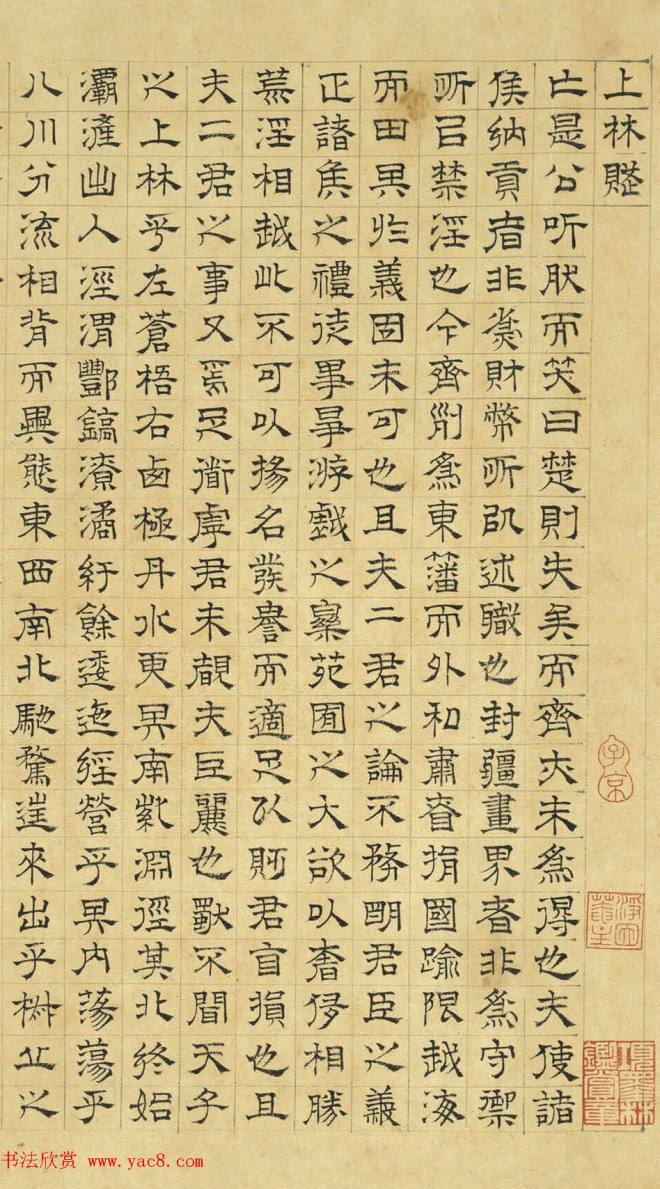 上林賦
亡是公听肰而笑曰楚則失矣而齊亦未為得也夫使諸
侯納貢者非為財幣所以述職也封疆畫界者非為守禦
所以禁淫也今齊列為東藩而外私肅慎捐國踰限越海
而田其於義固未可也且夫二君之論不務明君臣之義
正諸侯之禮徒事爭游戲之樂苑囿之大欲以奢侈相勝
荒淫相越此不可以揚名發譽而適足以貶君自損也且
夫二君之事又焉足道虖君未覩夫巨麗也獨不聞天子
之上林乎左蒼梧右西極丹水更其南紫淵徑其北終始
灞滻出入涇渭酆鎬潦潏紆餘逶迤經營乎其內蕩蕩乎
八川分流相背而異態東西南北馳騖往來出乎椒丘之
子京
項墨林鑑賞章
书法欣赏 www.yac8.com